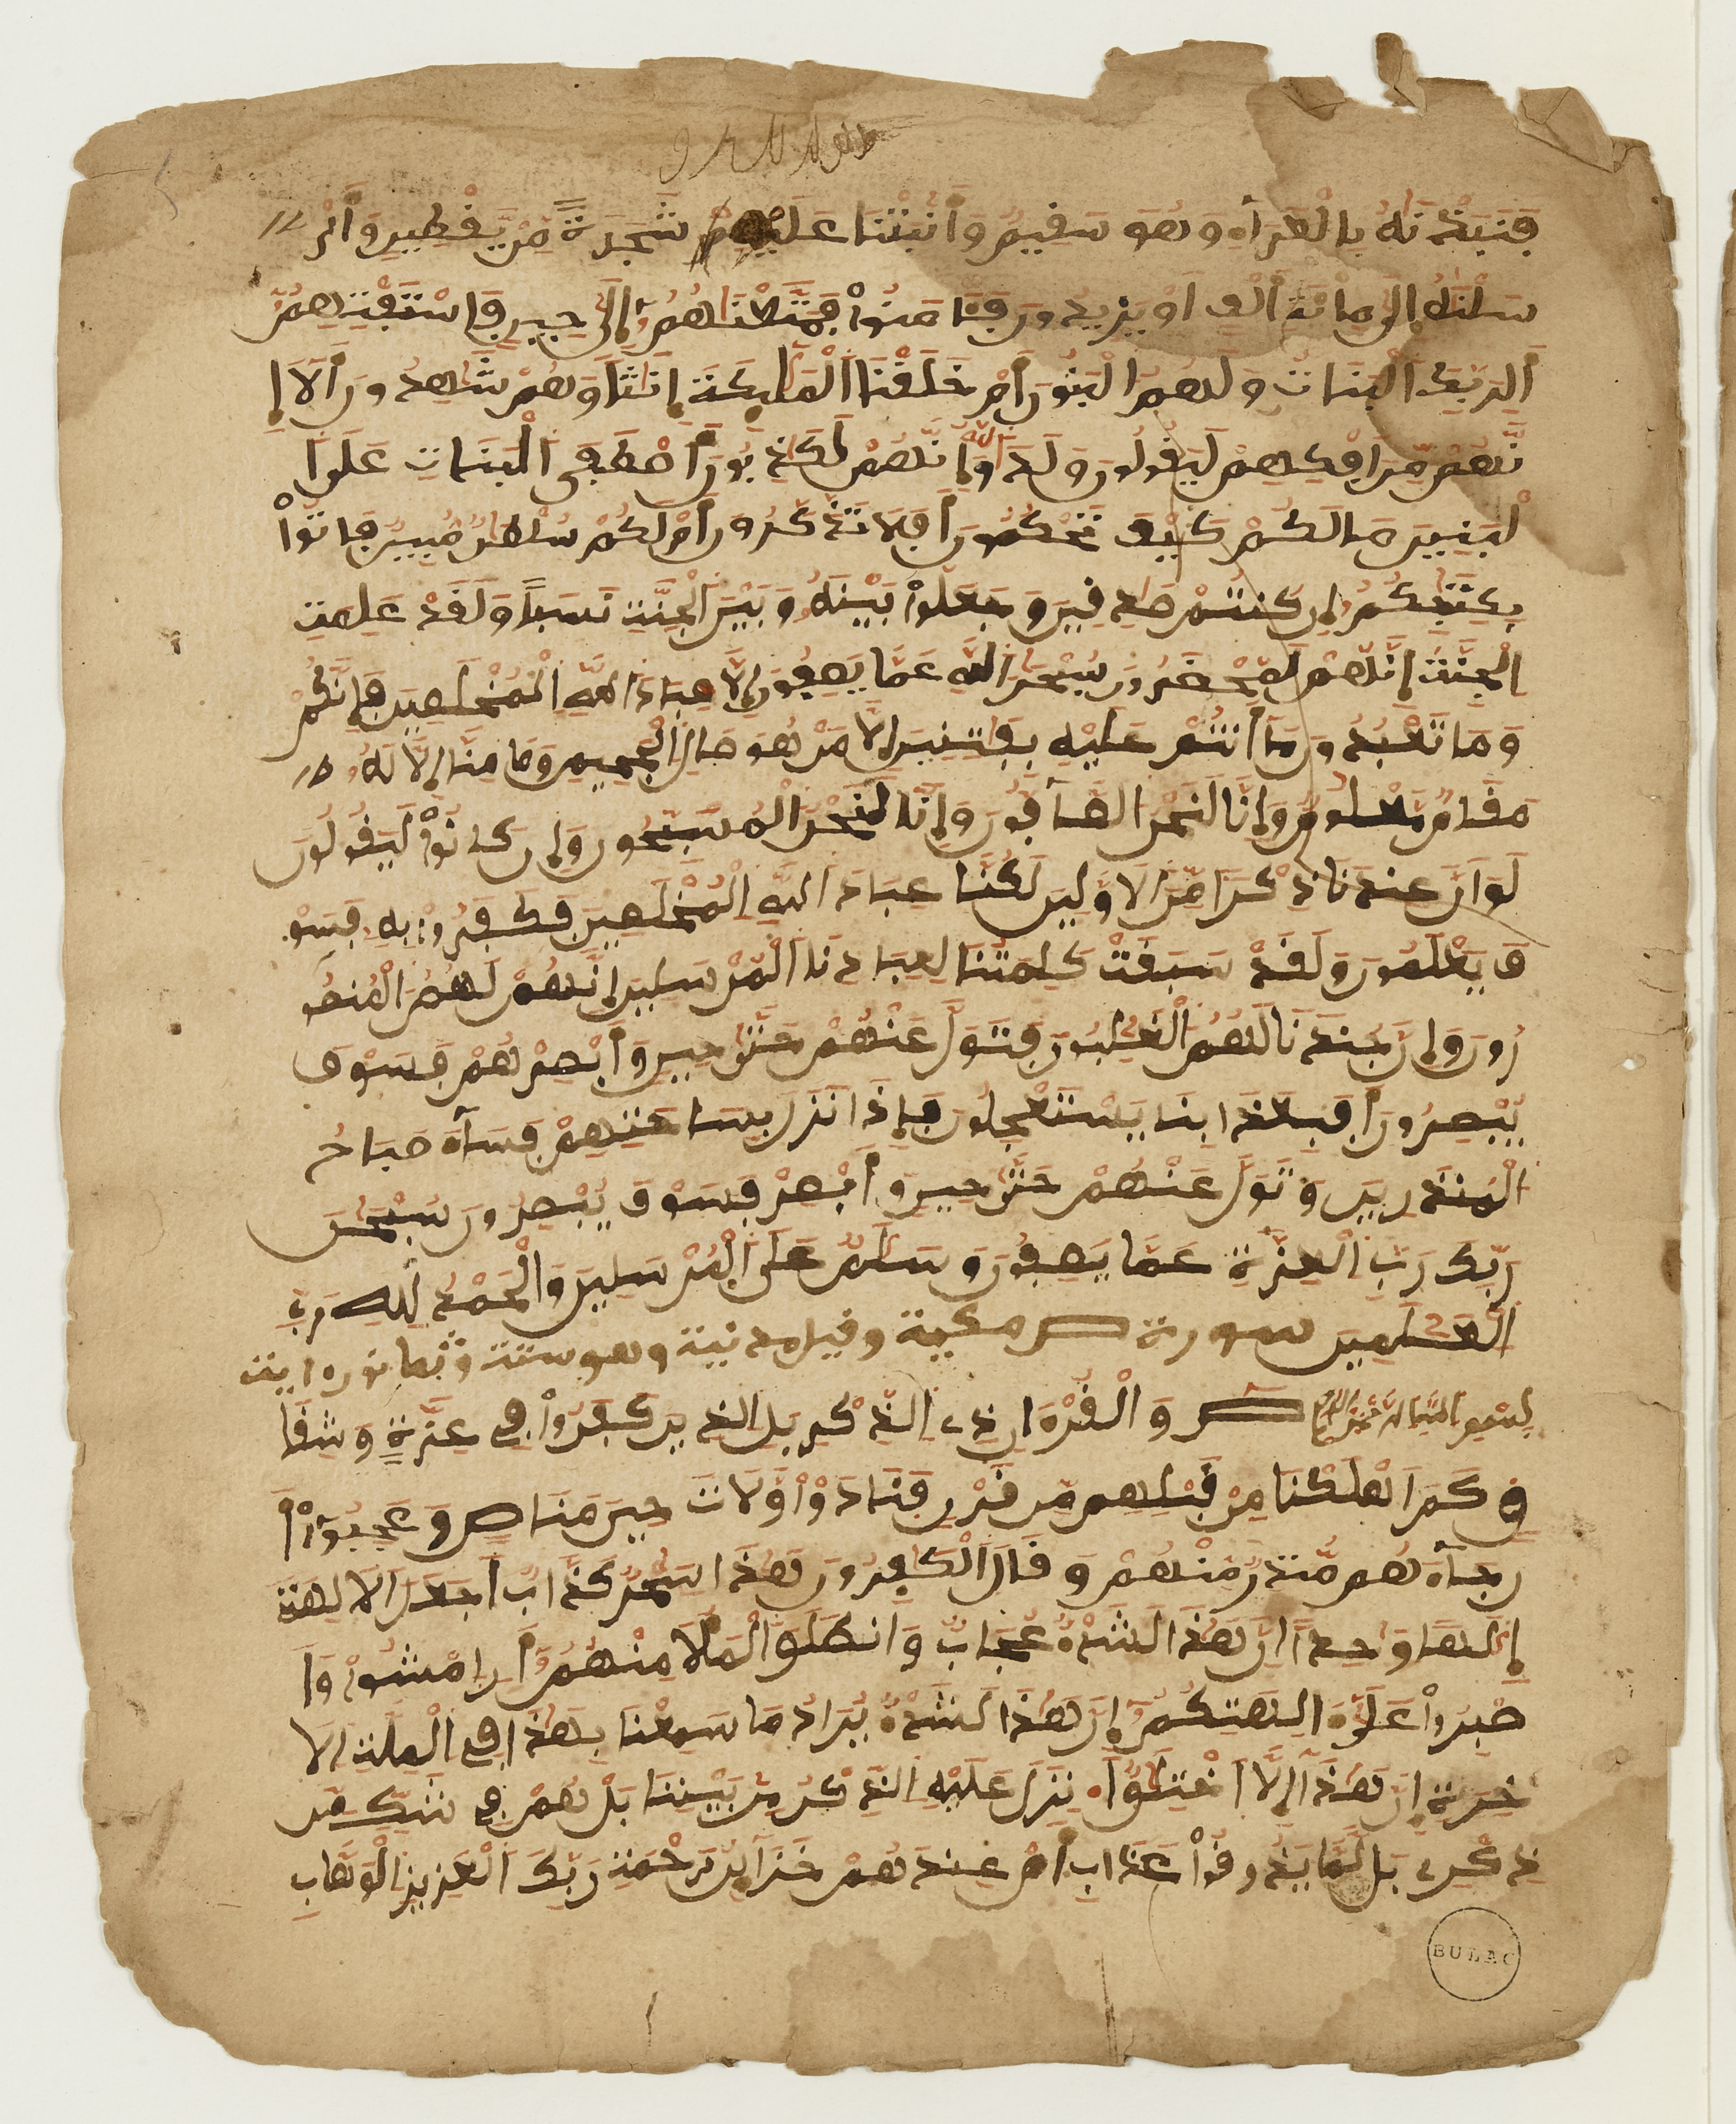 فَنَبَذْنَٰهُ بِالْعَرَآءِ وَهُوَ سَفِيمٌ وَأَنۢبَتْنَا عَلَيْهِ شَجَرَةً مِّنْ يَّفْطِينٍ وَأَرْ
سَلْنَٰهُ إِلَىٰ مِا۟ئَةِ أَلْفٍ اَوْ يَزِيدُونَ فَـَٔامَنُوا۟ فَمَتَّعْنَٰهُمُۥٓ إِلَىٰ حِينٍ فَاسْتَفْتِهِمُۥٓ
أَلِرَبِّكَ اَلْبَنَاتُ وَلَهُمُ الْبَنُونَ أَمْ خَلَفْنَا اَلْمَلَٰٓئِكَةَ إِنَٰثًا وَهُمْ شَٰهِدُونَ أَلَآ إِ
نَّهُم مِّنِ اِفْكِهِمْ لَيَفُولُونَ وَلَدَ اَللَّهُ وَإِنَّهُمْ لَكَٰذِبُونَ أَصْطَفَى اَلْبَنَاتِ عَلَى اَ
لْبَنِينَ مَا لَكُمْ كَيْفَ تَحْكُمُونَ أَفَلَا تَذَّكَّرُونَ أَمْ لَكُمْ سُلْطَٰنٌ مُّبِينٌ فَاتُوا۟
بِكِتَٰبِكُمُۥٓ إِن كُنتُمْ صَٰدِفِينَ وَجَعَلُوا۟ بَيْنَهُۥ وَبَيْنَ اَلْجِنَّةِ نَسَبًا وَلَفَدْ عَلِمَتِ
اِلْجِنَّةُ إِنَّهُمْ لَمُحْضَرُونَ سُبْحَٰنَ اَللَّهِ عَمَّا يَصِفُونَ إِلَّا عِبَادَ اَللَّهِ اِلْمُخْلَصِينَ فَإِنَّكُمْ
وَمَا تَعْبُدُونَ مَآ أَنتُمْ عَلَيْهِ بِفَٰتِنِينَ إِلَّا مَنْ هُوَ صَالِ اِلْجَحِيمِ وَمَا مِنَّآ إِلَّا لَهُۥ
مَفَامٌ مَّعْلُومٌ وَإِنَّا لَنَحْنُ اَلصَّآفُّونَ وَإِنَّا لَنَحْنُ اَلْمُسَبِّحُونَ وَإِن كَانُوا۟ لَيَفُولُونَ
لَوَ اَنَّ عِندَنَا ذِكْرًا مِّنَ اَلَاوَّلِينَ لَكُنَّا عِبَادَ اَللَّهِ اِلْمُخْلَصِينَ فَكَفَرُوا۟ بِهِۦ فَسَوْ
فَ يَعْلَمُونَ وَلَفَدْ سَبَفَتْ كَلِمَتُنَا لِعِبَادِنَا اَلْمُرْسَلِينَ إِنَّهُمْ لَهُمُ اُلْمَنصُو
رُونَ وَإِنَّ جُندَنَا لَهُمُ اُلْغَٰلِبُونَ فَتَوَلَّ عَنْهُمْ حَتَّىٰ حِينٍ وَأَبْصِرْهُمْ فَسَوْفَ
يُبْصِرُونَ أَفَبِعَذَابِنَا يَسْتَعْجِلُونَ فَإِذَا نَزَلَ بِسَاحَتِهِمْ فَسَآءَ صَبَاحُ
اُلْمُنذَرِينَ وَتَوَلَّ عَنْهُمْ حَتَّىٰ حِينٍ وَأَبْصِرْ فَسَوْفَ يُبْصِرُونَ سُبْحَٰنَ
رَبِّكَ رَبِّ اِلْعِزَّةِ عَمَّا يَصِفُونَ وَسَلَٰمٌ عَلَى اَلْمُرْسَلِينَ وَالْحَمْدُ لِلهِ رَبِّ
اِلْعَٰلَمِينَ سورة ص مكية وفيل مدنية وهو ستة وثمانون ءاية
بسم الله الرحمن الرحيم ص وَالْفُرْءَانِ ذِے اِلذِّكْرِ بَلِ اِلذِينَ كَفَرُوا۟ فِي عِزَّةٍ وَشِفَا
فٍ كَمَ اَهْلَكْنَا مِن فَبْلِهِم مِّن فَرْنٍ فَنَادَوا۟ وَّلَاتَ حِينَ مَنَاصٍ وَعَجِبُوٓا۟ أَ
ن جَآءَهُم مُّنذِرٌ مِّنْهُمْ وَفَالَ اَلْكَٰفِرُونَ هَٰذَا سَٰحِرٌ كَذَّابٌ اَجَعَلَ اَلَالِهَةَ
إِلَٰهًا وَٰحِدًا اِنَّ هَٰذَا لَشَےْءٌ عُجَابٌ وَانطَلَقَ اَلْمَلَأُ مِنْهُمُۥٓ أَنِ اِمْشُوا۟ وَا
صْبِرُوا۟ عَلَىٰٓ ءَالِهَتِكُمُۥٓ إِنَّ هَٰذَا لَشَےْءٌ يُرَادُ مَا سَمِعْنَا بِهَٰذَا فِي اِلْمِلَّةِ اِلَا
خِرَةِ إِنْ هَٰذَآ إِلَّا اَخْتِلَٰقٌ اَ.نزِلَ عَلَيْهِ اِلذِّكْرُ مِنۢ بَيْنِنَا بَلْ هُمْ فِي شَكٍّ مِّن
ذِكْرِے بَل لَّمَّا يَذُوفُوا۟ عَذَابِ أَمْ عِندَهُمْ خَزَآئِنُ رَحْمَةِ رَبِّكَ اَلْعَزِيزِ اِلْوَهَّابِ
BULAC